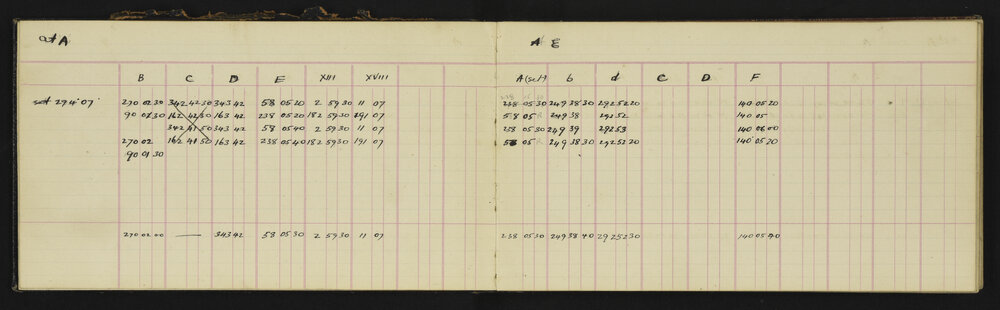 at A
B C D E XIII XVIII
set 294 07 270 02 30 342 42 30 343 42 58 05 20 2 59 30 11 07
90 01 30 162 42 30 163 42 238 05 20 182 59 30 191 07
342 41 50 343 42 58 05 40 2 59 30 11 07
270 02 162 41 50 163 42 238 05 40 182 59 30 191 07
90 01 30
270 02 00 — 343 42 58 05 30 2 59 30 11 07
A E
A (set) b d C D F
238 05 30 249 38 30 292 52 20 140 05 20
58 05 249 38 292 52 140 05
238 05 30 249 39 292 53 140 06 00
58 05 249 38 30 292 52 20 140 05 20
238 05 30 249 38 40 292 52 30 140 05 40